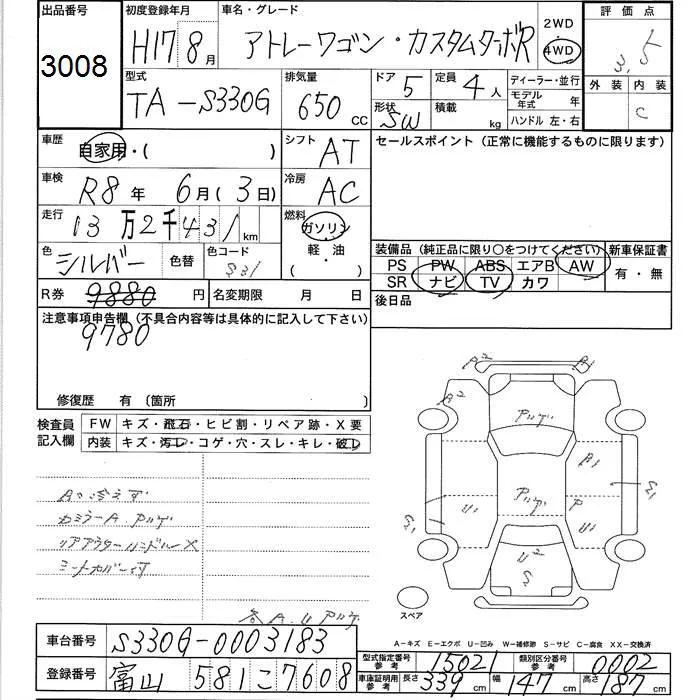 出品番号 3008
初度登録年月 H17年8月
車名・グレード アトレーワゴン・カスタムターボR
2WD
4WD
評価点 3.5
外装 内装 C
型式 TA-S330G
排気量 650 CC
ドア 5
定員 4人
形状 SW
積載 kg
ディーラー・並行
モデル年式 年
ハンドル 左・右
車歴 自家用・( )
シフト AT
セールスポイント (正常に機能するものに限ります)
車検 R8年 6月(3日)
冷房 AC
走行 13万2千431km
燃料 ガソリン
軽・油
( )
色 シルバー 色替 色コード S31
装備品 (純正品に限り○をつけてください) 新車保証書
PS PW ABS エアB AW 有・無
SR ナビ TV カワ
R券 9880 名変期限 月 日
後日品
注意事項申告欄 (不具合内容等は具体的に記入して下さい)
9780
修復歴 有 (箇所 )
検査員記入欄
FW キズ・飛石・ヒビ割・リペア跡・X要
内装 キズ・汚レ・コゲ・穴・スレ・キレ・破レ
A2
P2
A2
Pハゲ
A1
S1
Pハゲ
P
U1
U1
S1
U2
S
スペア
A.C冷えず
カミラーA.Pハゲ
リアアウターハンドル×
シートカバー付
A.U Pハゲ
A-キズ E-エクボ U-凹み W-補修跡 S-サビ C-腐食 XX-交換済
車台番号 S330G-0003183
型式指定番号 参考 15021 類別区分番号 参考 0002
登録番号 富山 581 こ 7608
車庫証明用 参考 長さ 339 cm 幅 147 cm 高さ 187 cm